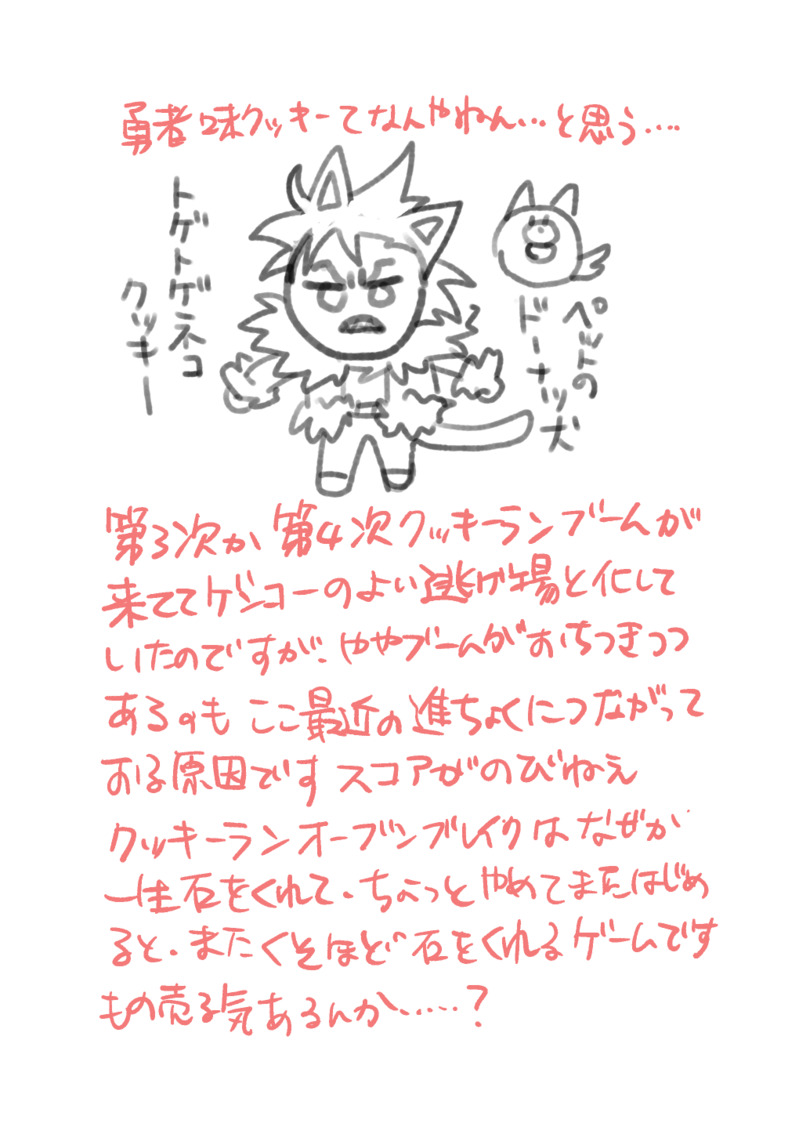 勇者味クッキーてなんやねん…と思う….
トゲトゲネコ
クッキー
ペットの
ドーナッツ犬
第3次か第4次クッキーランブームが
来ててゲンコーのよい逃げ場と化して
いたのですが、ややブームがおちつきつつ
あるのも ここ最近の進ちょくにつながって
おる原因です スコアがのびねえ
クッキーランオーブンブレイクはなぜか
一生石をくれて、ちょっとやめてまたはじめ
ると、またくそほど石をくれるゲームです
もの売る気あるんか……?